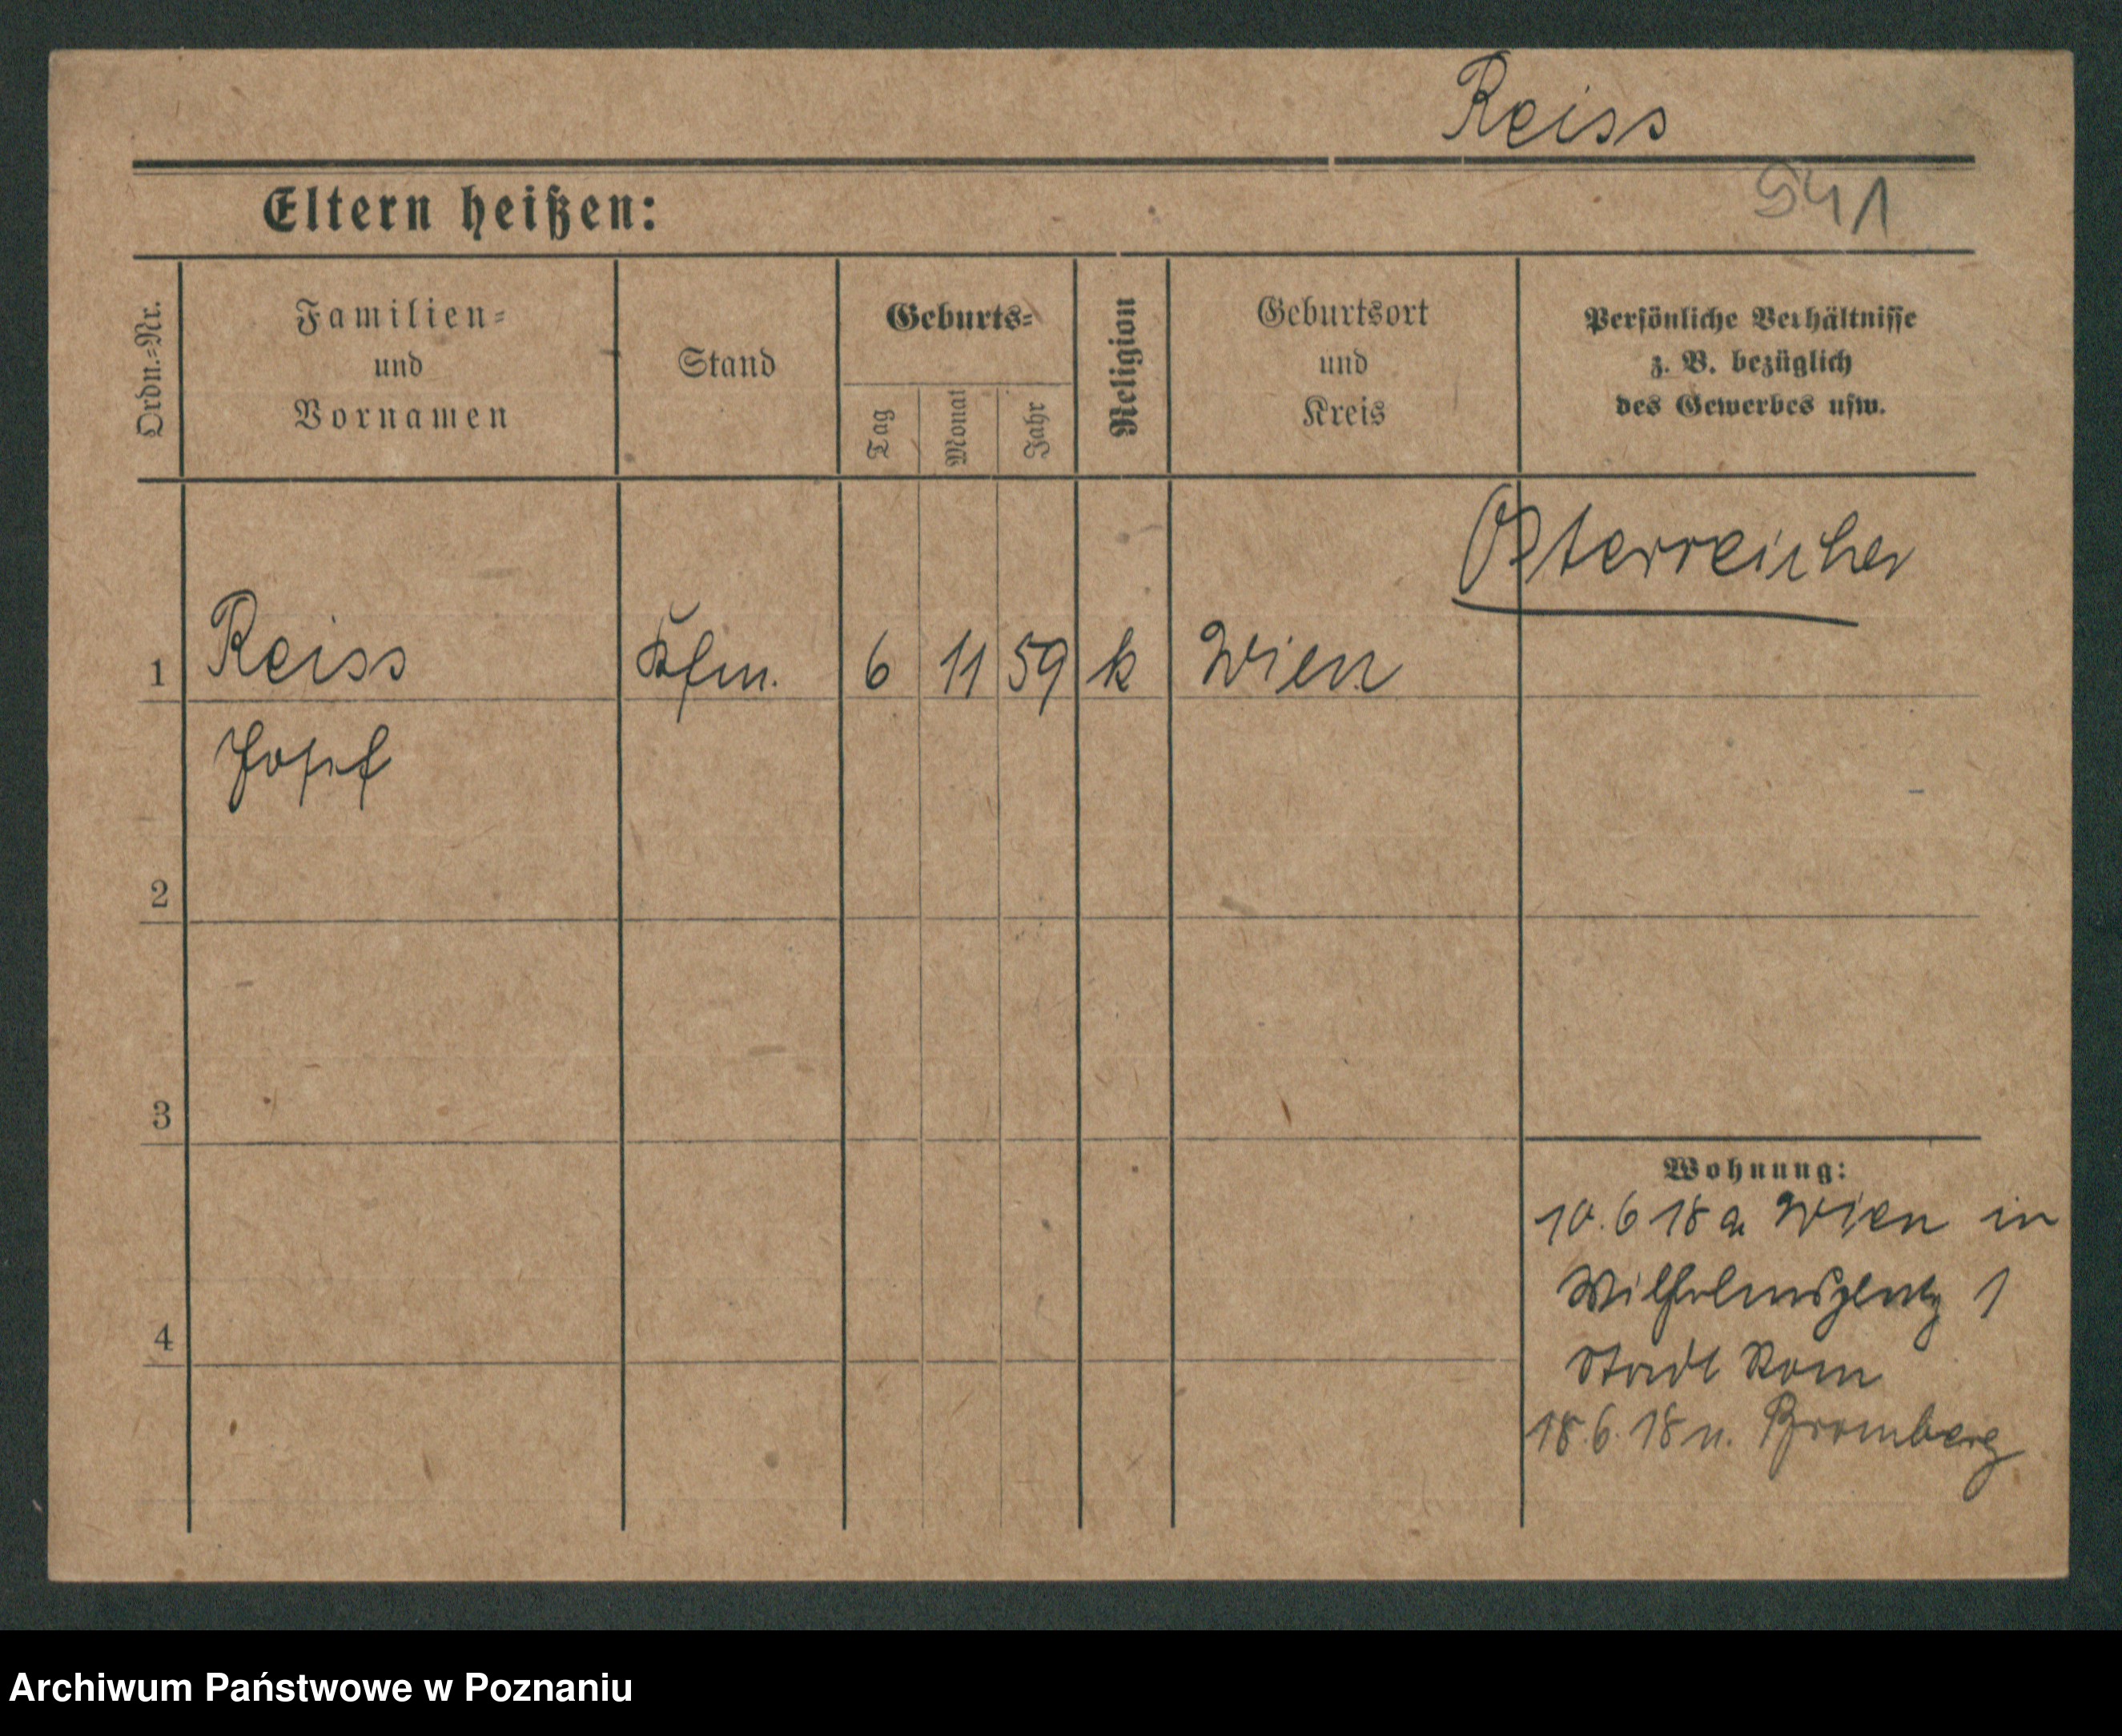 Reiss
541
Eltern heißen:
Ordn.-Nr.
Familien-
und
Vornamen
Stand
Geburts-
Tag
Monat
Jahr
Religion
Geburtsort
und
Kreis
Persönliche Verhältnisse
z. B. bezüglich
des Gewerbes usw.
Österreicher
1 Reiss Kfm. 6 11 59 k Wien
Josef
2
3
Wohnung:
10.6 18 a Wien in
Wilhelmsplatz 1
4
Stadt Rom
18.6.18 n. Bromberg
Archiwum Państwowe w Poznaniu